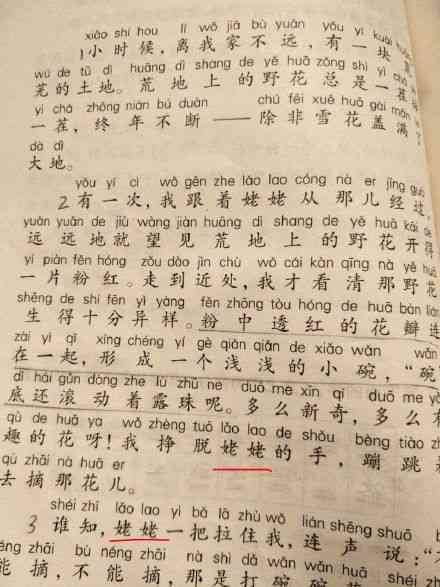 xiǎo shí hou lí wǒ jiā bù yuǎn yǒu yí kuài
1小时候,离我家不远,有一块
wú de tǔ dì huāng dì shang de yě huā zǒng shì yì chá
芜的土地。荒地上的野花总是一茬
yì chá zhōng nián bú duàn chú fēi xuě huā gài mǎn
一茬,终年不断——除非雪花盖满了
dà dì
大地。
yǒu yí cì wǒ gēn zhe lǎo lao cóng nà er jīng guò
2有一次,我跟着姥姥从那儿经过,
yuǎn yuǎn de jiù wàng jiàn huāng dì shang de yě huā kāi de
远远地就望见荒地上的野花开得
yí piàn fěn hóng zǒu dào jìn chù wǒ cái kàn qīng nà yě huā
一片粉红。走到近处,我才看清那野花
shēng de shí fēn yì yàng fěn zhōng tòu hóng de huā bàn lián
生得十分异样。粉中透红的花瓣连
zài yì qǐ xíng chéng yí gè qiǎn qiǎn de xiǎo wǎn wǎn
在一起,形成一个浅浅的小碗,“碗
dǐ hái gǔn dòng zhe lù zhū ne duō me xīn qí duō me yǒu
底还滚动着露珠呢。多么新奇,多么有
qù de huā ya wǒ zhèng tuō lǎo lao de shǒu bèng tiào
趣的花呀!我挣脱姥姥的手,蹦跳
qù zhāi nà huā er
去摘那花儿。
shéi zhī lǎo lao yì bǎ lā zhù wǒ lián shēng shuō
3谁知,姥姥一把拉住我,连声说:“
néng zhāi bù néng zhāi nà shì dǎ wǎn wǎn huā shéi
能摘,不能摘,那是打碗碗花